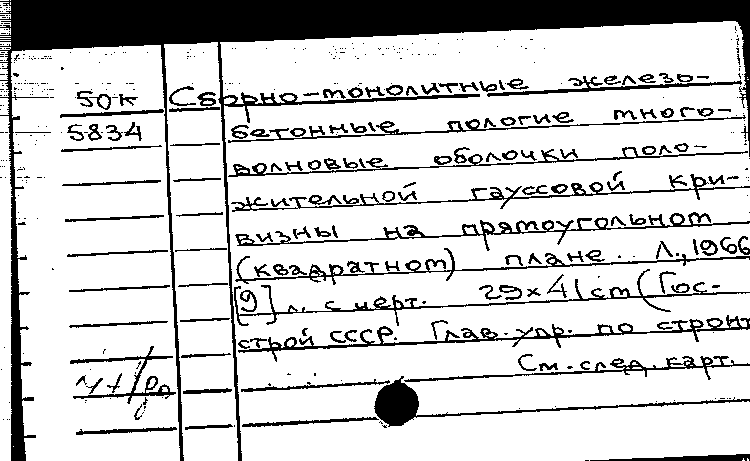 50к Сборно-монолитные железо-
5834 бетонные пологие много-
волновые оболочки поло-
жительной гауссовой кри-
визны на прямоугольном
(квадратном) плане. Л., 1966
[9] л. с черт. 29×41 cm (Гос-
строй СССР. Глав. упр. по строит
См. след. карт.